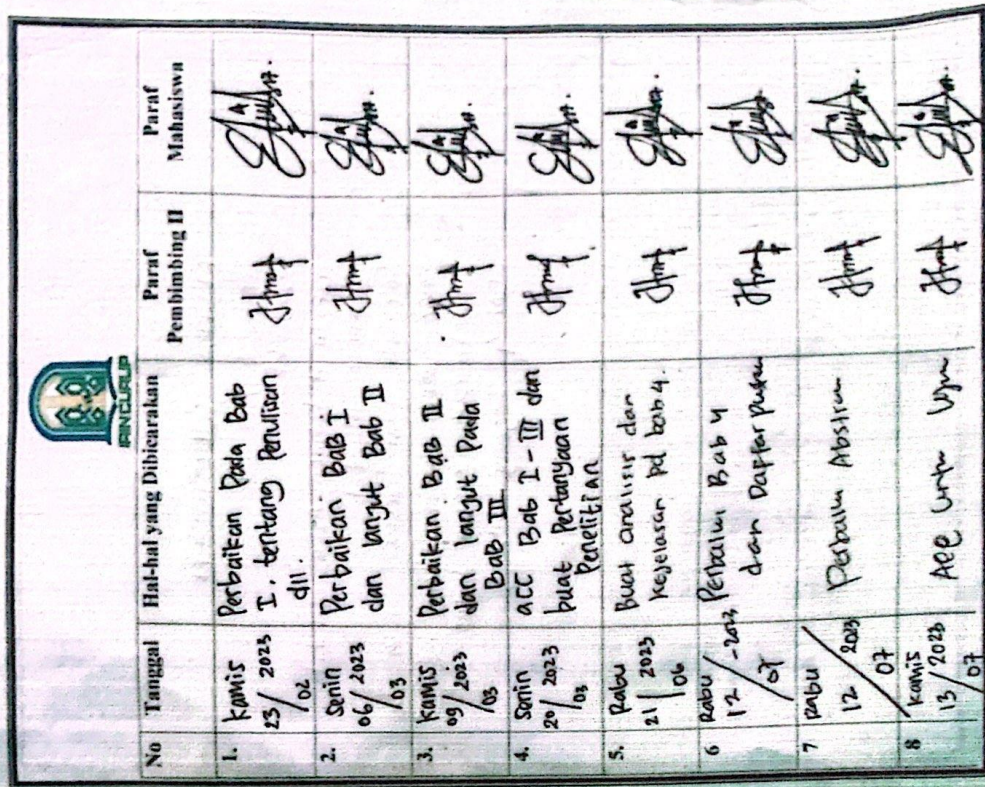 IAIN CURUP
No Tanggal Hal-hal yang Dibicarakan Paraf Pembimbing II Paraf Mahasiswa
1. Kamis 23/02 2023
Perbaikan Pada Bab
I. tentang Penulisan
dll.
2. Senin 06/03 2023
Perbaikan BAB I
dan lanjut Bab II
3. Kamis 09/03 2023
Perbaikan BAB II
dan lanjut Pada
BAB III
4. Senin 20/03 2023
acc Bab I - III dan
buat Pertanyaan
Penelitian
5. Rabu 21/06 2023
Buat analisir dan
kejelasan pd bab 4.
6 Rabu 12/07 -2023
Perbaikan Bab 4
dan Daftar Pustaka
7 Rabu 12/07 2023
Perbaikan Abstrak
8 Kamis 13/07 2023
Acc untuk Ujian